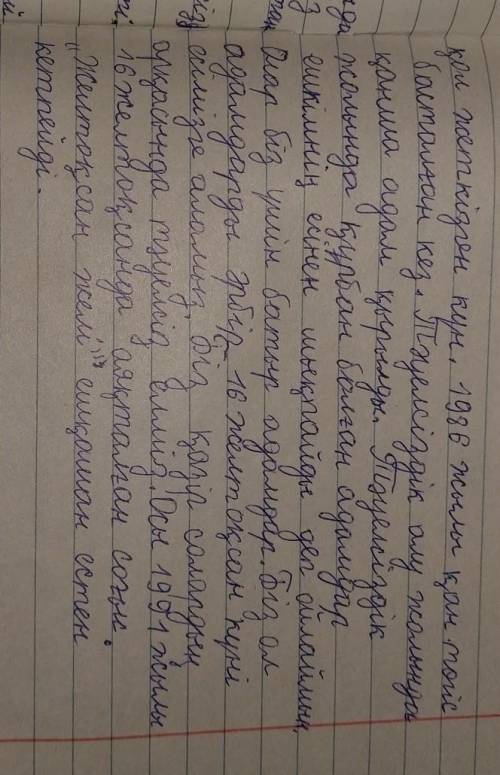 қол жеткізген күн. 1986 жылы қан төгіс
басталған кез. Тәуелсіздік алу жолында
қанша адам қырылды. Тәуелсіздік
жолында құрбан болған адамдар
ешкімнің есінен шықпайды деп ойлаймын.
Олар біз үшін батыр адамдар. Біз ол
адамдарды әрбір 16 желтоқсан күні
есімізге аламыз. Біз қазір солардың
арқасында тәуелсіз елміз. Осы 1991 жылы
16 желтоқсанда аяқталған соғыс
"Желтоқсан желі" ешқашан естен
кетпейді.